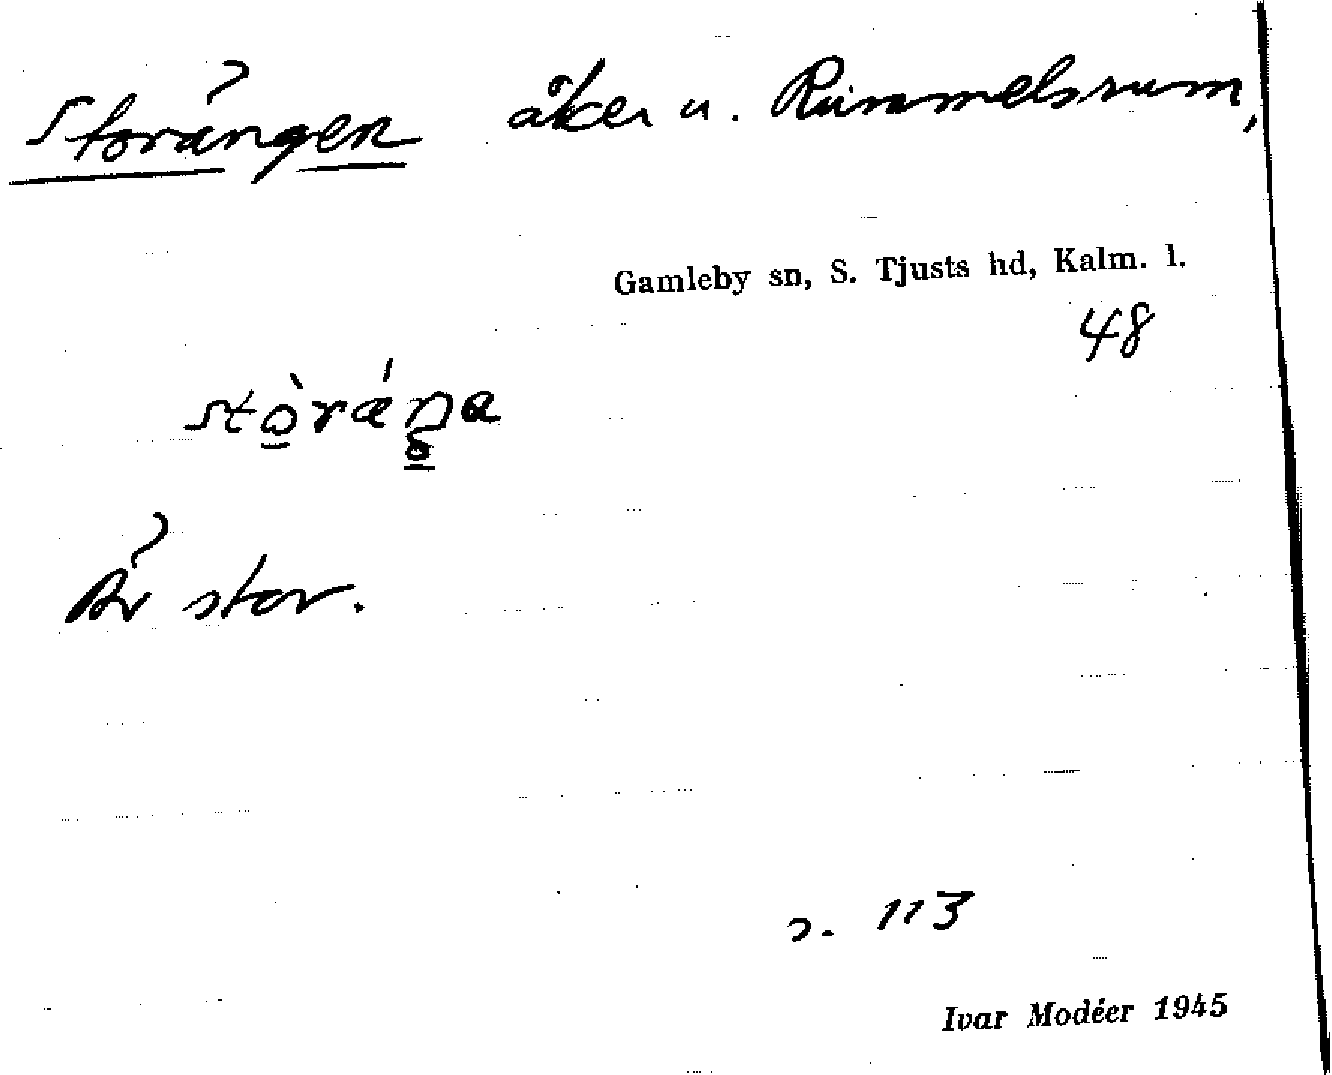 Storängen åker u. Rummelsrum,
Gamleby sn, S. Tjusts hd, Kalm. l.
48
Är stor.
s. 113
Ivar Modéer 1945